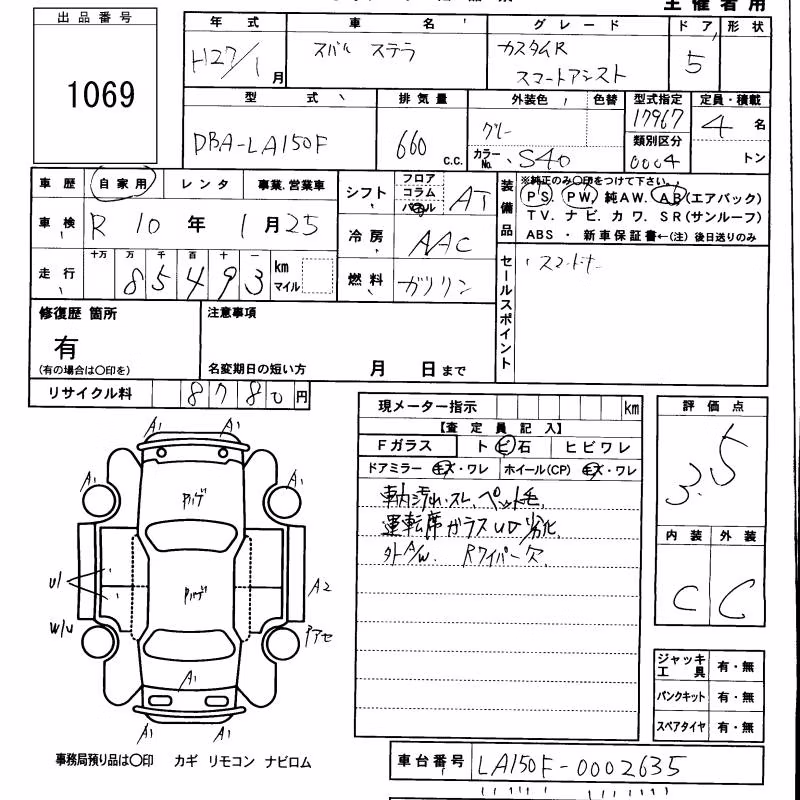 主催者用
出品番号
1069
年式 車名 グレード ドア 形状
H27/1月 スバル ステラ カスタムR スマートアシスト 5
型式 排気量 外装色 色替 型式指定 定員・積載
DBA-LA150F 660 c.c. グレー 17967 4 名
カラーNo. S40 類別区分 0004 トン
車歴 自家用 レンタ 事業、営業車
車検 R 10 年 1 月 25
走行 十万 万 千 百 十 一
8 5 4 9 3 km マイル
シフト フロア コラム パネル AT
冷房 AAC
燃料 ガソリン
装備品 ※純正のみ〇印をつけて下さい。
PS. PW. 純AW. AB(エアバック)
TV. ナビ. カワ. SR(サンルーフ)
ABS ・ 新車保証書←(注) 後日送りのみ
セールスポイント
修復歴 箇所
有
(有の場合は〇印を)
注意事項
名変期日の短い方 月 日まで
リサイクル料 8780円
現メーター指示 km
【査定員記入】
Fガラス トビ石 ヒビワレ
ドアミラー キズ・ワレ ホイール(CP) キズ・ワレ
車内汚れ、スレ、ペット毛
運転席ガラスUD劣化
外A/W. Rワイパー欠
評価点
3.5
内装 外装
C C
A1 A1
A1 A1
U1 A2
W/U アアセ
A1
A1 A1
ジャッキ工具 有・無
パンクキット 有・無
スペアタイヤ 有・無
事務局預り品は〇印 カギ リモコン ナビロム
車台番号 LA150F-0002635